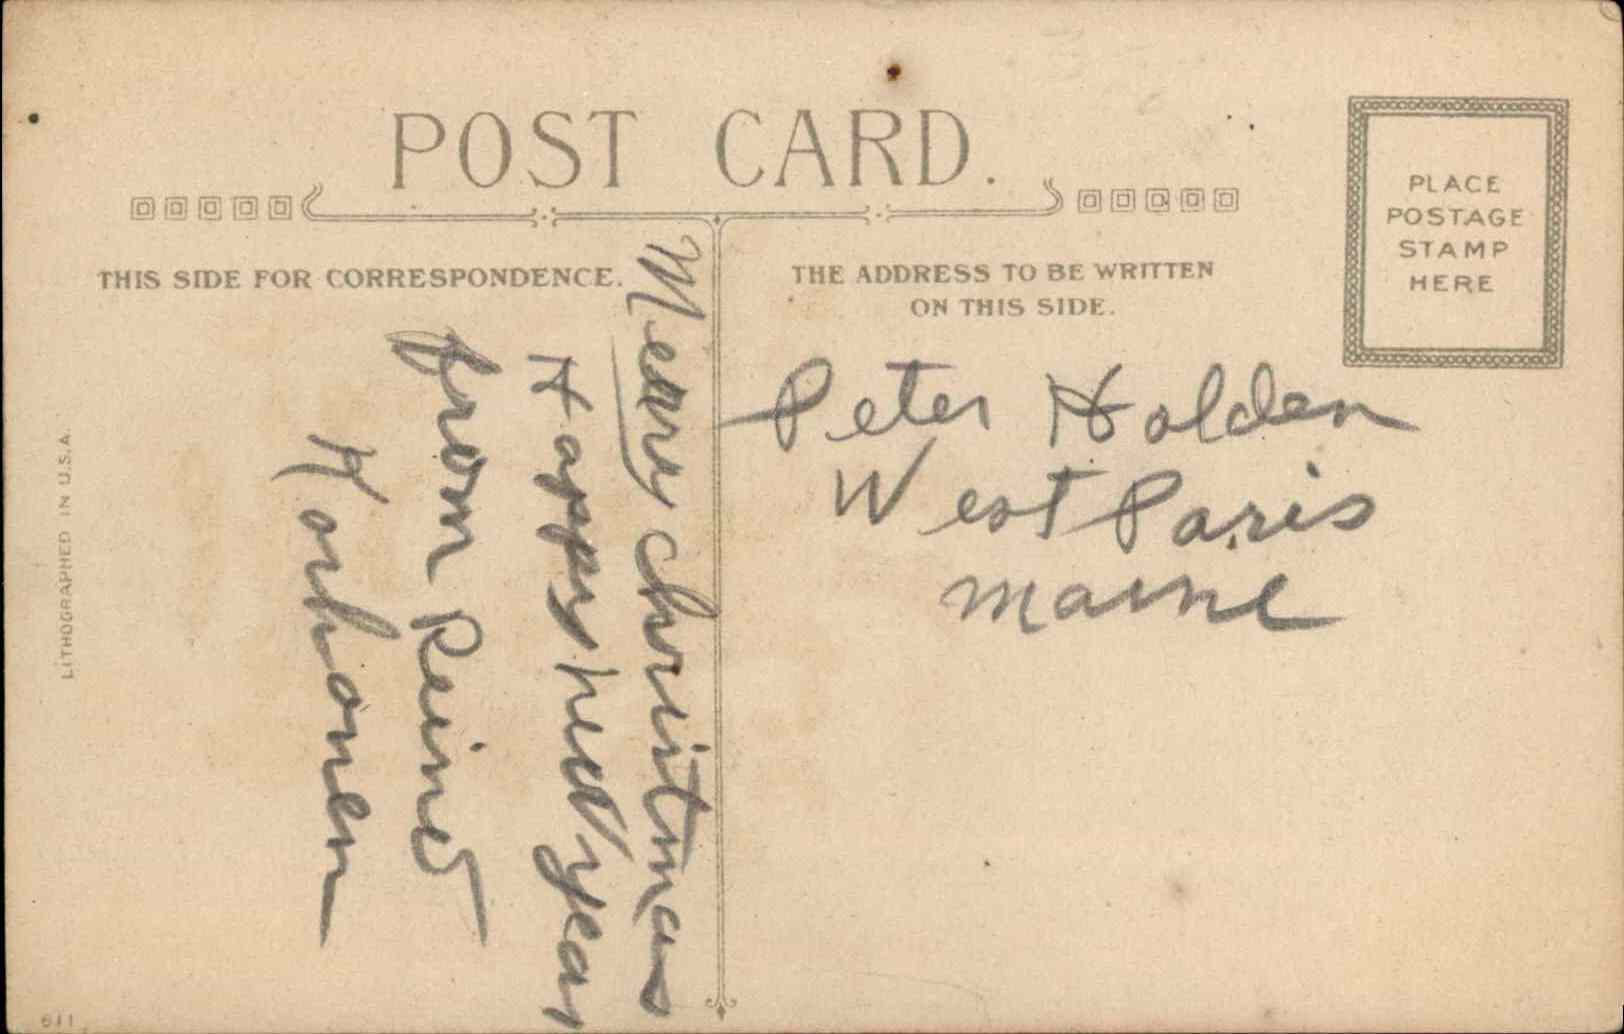 POST CARD.
THIS SIDE FOR CORRESPONDENCE.
THE ADDRESS TO BE WRITTEN
ON THIS SIDE.
PLACE
POSTAGE
STAMP
HERE
Merry christmas
Happy new year
from Reino
Korhonen
Peter Holden
West Paris
maine
LITHOGRAPHED IN U.S.A.
611